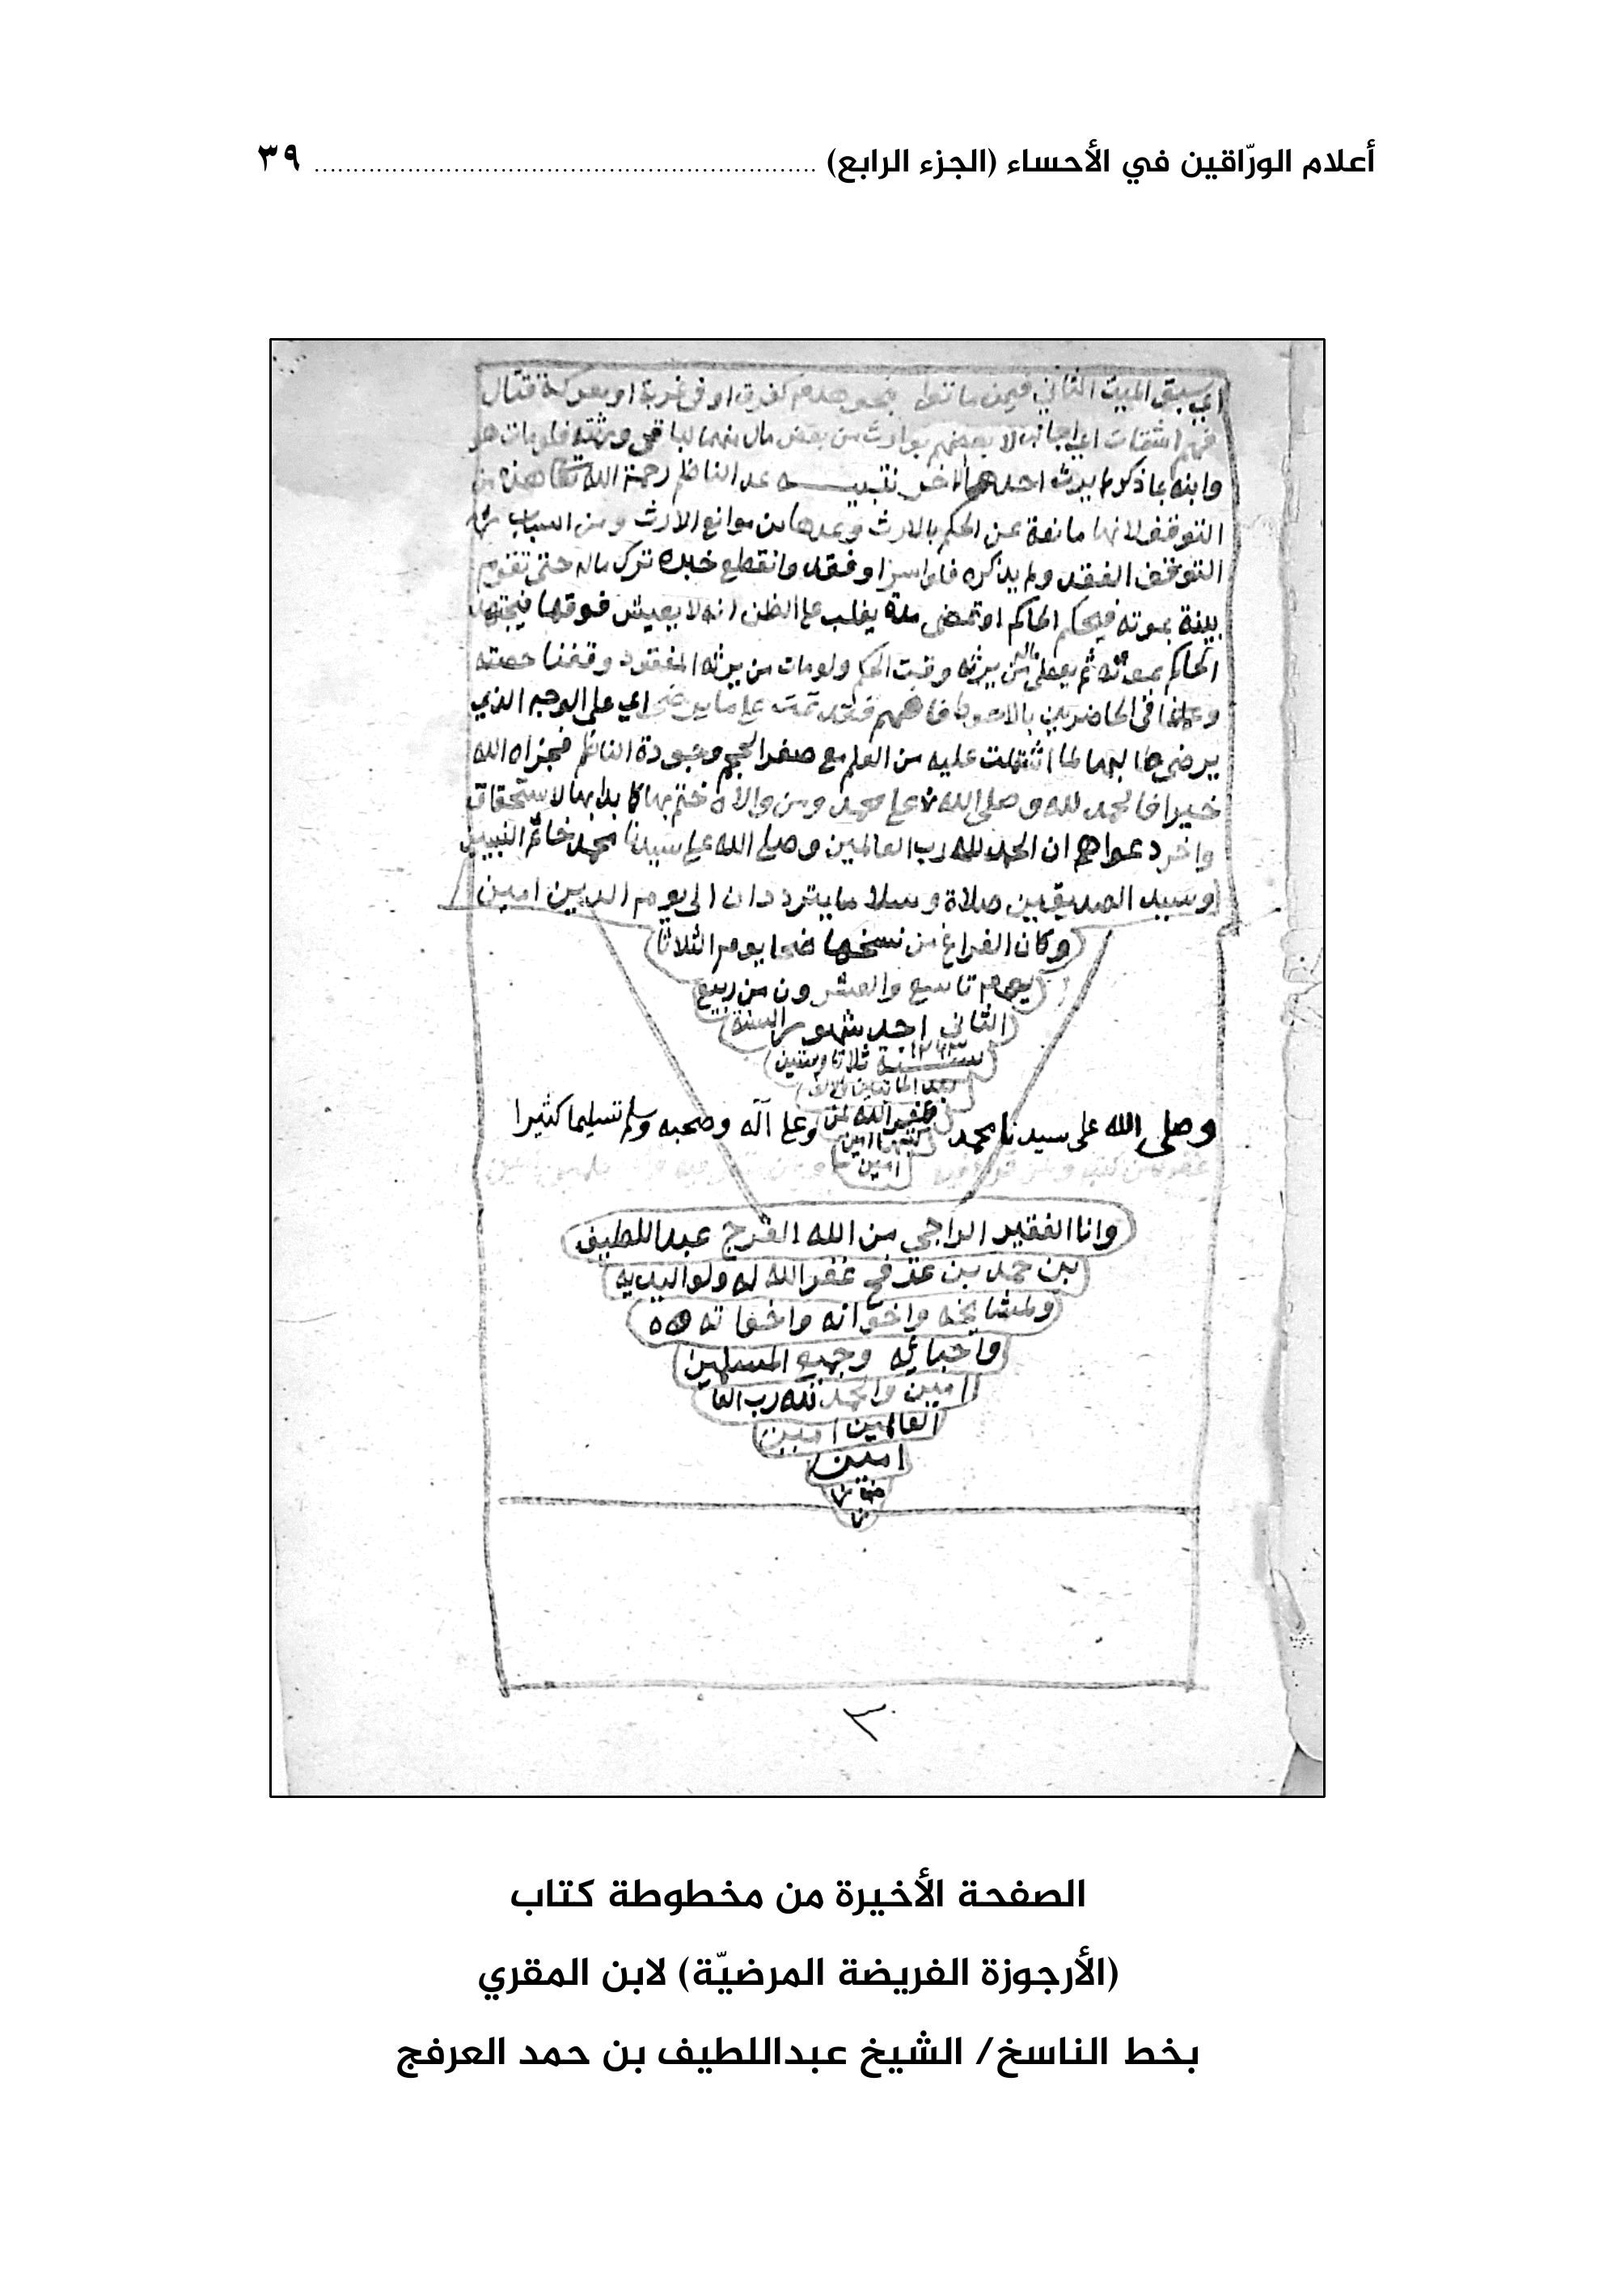 أعلام الورّاقين في الأحساء (الجزء الرابع) ................................................................ ٣٩
اي سبق الميت الثاني فيمن ماتوا بنحو هدم كغرق او في غربة او معركة قتال
فهم اي اجانب لا بعضهم بوارث من بعض مال لباقي ورثته فلو مات هو
وابنه بما ذكر لم يرث احدهما اخر تنبيـــــه عد الناظم رحمة الله هذه من
التوقف لانها مانعة عن الحكم بالارث وعدها من موانع الارث ومن اسباب
التوقف الفقد ولم يذكره فلو اسر او فقد وانقطع خبره ترك ماله حتى تقوم
بينة بموته فيحكم الحاكم او تمضى مدة يغلب على الظن انه لا يعيش فوقها فيجتهد
الحاكم بموته ثم يعطى ماله من يرثه وقت الحكم ولو مات من يرثه المفقود وقفنا حصته
وعملنا في الحاضرين بالاسوا فافهم فقد تمت على ما يرضى اي على الوجه الذي
يرضى طالبها لما اشتملت عليه من العلم مع صغر الحجم وجودة الناظم فجزاه الله
خيرا فالحمد لله وصلى الله على محمد ومن والاه ختم بها كما بدا بها لاستحقاق
واخر دعواهم ان الحمد لله رب العالمين وصلى الله على سيدنا محمد خاتم النبيين
وسيد الصديقين صلاة وسلا ما يترددان الى يوم الدين امين
وكان الفراغ من نسخها ضحا يوم الثلاثا
يوم تاسع والعشرون من ربيع
الثاني احد شهور السنة
سنـــة ثلاثا وستين
بعد المائتين والالف
غفر الله لمن
كتبها امين
امين
وصلى الله على سيدنا محمد وعلى آله وصحبه وسلم تسليما كثيرا
وانا الفقير الراجي من الله الفرج عبداللطيف
بن حمد بن عرفج غفر الله له ولوالديه
ولمشايخه واخوانه واخواته
واحبائه وجميع المسلمين
امين والحمد لله رب العا
العالمين امين
امين
٣
الصفحة الأخيرة من مخطوطة كتاب
(الأرجوزة الفريضة المرضيّة) لابن المقري
بخط الناسخ/ الشيخ عبداللطيف بن حمد العرفج